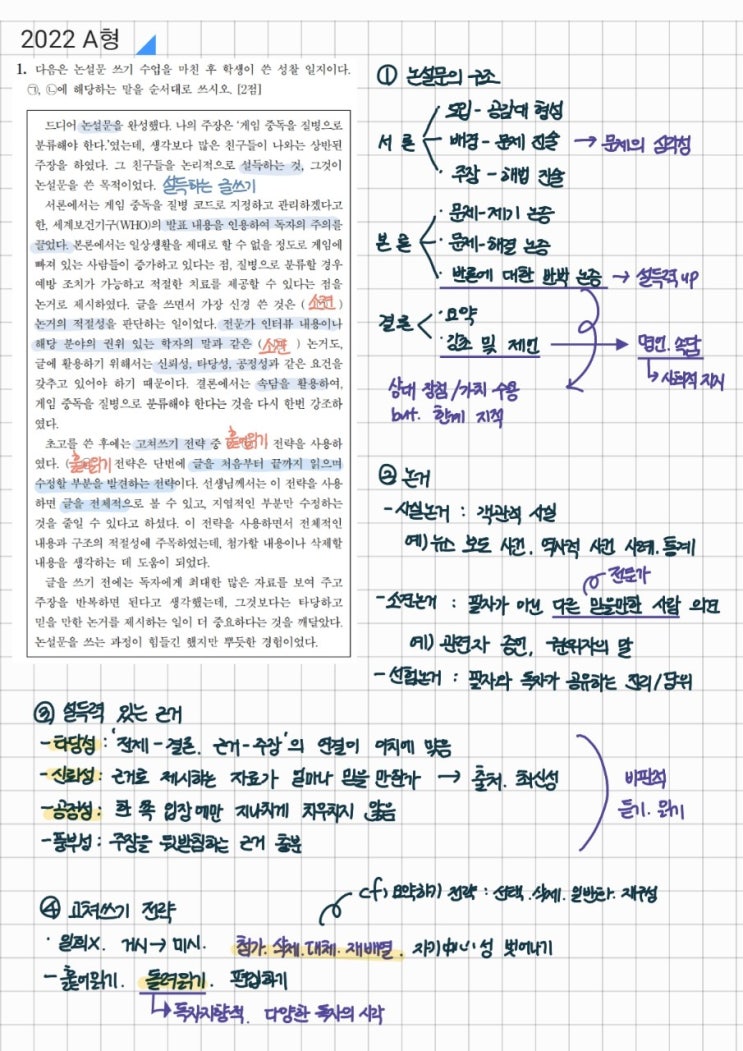 2022 A형
1. 다음은 논설문 쓰기 수업을 마친 후 학생이 쓴 성찰 일지이다.
㉠, ㉡에 해당하는 말을 순서대로 쓰시오. [2점]
드디어 논설문을 완성했다. 나의 주장은 '게임 중독을 질병으로
분류해야 한다.'였는데, 생각보다 많은 친구들이 나와는 상반된
주장을 하였다. 그 친구들을 논리적으로 설득하는 것, 그것이
논설문을 쓴 목적이었다. 설득하는 글쓰기
서론에서는 게임 중독을 질병 코드로 지정하고 관리하겠다고
한, 세계보건기구(WHO)의 발표 내용을 인용하여 독자의 주의를
끌었다. 본론에서는 일상생활을 제대로 할 수 없을 정도로 게임에
빠져 있는 사람들이 증가하고 있다는 점, 질병으로 분류할 경우
예방 조치가 가능하고 적절한 치료를 제공할 수 있다는 점을
논거로 제시하였다. 글을 쓰면서 가장 신경 쓴 것은 ( 소견 )
논거의 적절성을 판단하는 일이었다. 전문가 인터뷰 내용이나
해당 분야의 권위 있는 학자의 말과 같은 ( 소견 ) 논거도,
글에 활용하기 위해서는 신뢰성, 타당성, 공정성과 같은 요건을
갖추고 있어야 하기 때문이다. 결론에서는 속담을 활용하여,
게임 중독을 질병으로 분류해야 한다는 것을 다시 한번 강조하
였다.
초고를 쓴 후에는 고쳐쓰기 전략 중 훑어읽기 전략을 사용하
였다. ( 훑어읽기 전략은 단번에 글을 처음부터 끝까지 읽으며
수정할 부분을 발견하는 전략이다. 선생님께서는 이 전략을 사용
하면 글을 전체적으로 볼 수 있고, 지엽적인 부분만 수정하는
것을 줄일 수 있다고 하셨다. 이 전략을 사용하면서 전체적인
내용과 구조의 적절성에 주목하였는데, 첨가할 내용이나 삭제할
내용을 생각하는 데 도움이 되었다.
글을 쓰기 전에는 독자에게 최대한 많은 자료를 보여 주고
주장을 반복하면 된다고 생각했는데, 그것보다는 타당하고
믿을 만한 논거를 제시하는 일이 더 중요하다는 것을 깨달았다.
논설문을 쓰는 과정이 힘들긴 했지만 뿌듯한 경험이었다.
① 논설문의 구조
서론
· 도입 - 공감대 형성
배경 - 문제 진술 → 문제의 심각성
· 주장 - 해법 진술
본론
· 문제-제기 논증
· 문제-해결 논증
· 반론에 대한 반박 논증 → 설득력 up
결론
· 요약
· 강조 및 제언 → 명언. 속담
↳ 사회적 지지
상대 장점/가치 수용
but. 한계 지적
② 논거
- 사실논거 : 객관적 사실
예) 뉴스 보도 사건. 역사적 사건 사례. 통계
전문가
- 소견논거 : 필자가 아닌 다른 믿을만한 사람 의견
예) 관련자 증언, 권위자의 말
- 선험논거 : 필자와 독자가 공유하는 진리/당위
③ 설득력 있는 근거
- 타당성 : '전제-결론. 근거-주장'의 연결이 이치에 맞음
- 신뢰성 : 근거로 제시하는 자료가 얼마나 믿을 만한가 → 출처. 최신성
- 공정성 : 한 쪽 입장에만 지나치게 치우치지 않음
- 풍부성 : 주장을 뒷받침하는 근거 충분
비판적
듣기. 읽기
④ 고쳐쓰기 전략
cf) 요약하기 전략 : 선택. 삭제. 일반화. 재구성
· 일회X. 거시→미시. 첨가. 삭제. 대체. 재배열. 자기中心성 벗어나기
- 훑어읽기. 돌려읽기. 편집하기
↳ 독자지향적. 다양한 독자의 시각